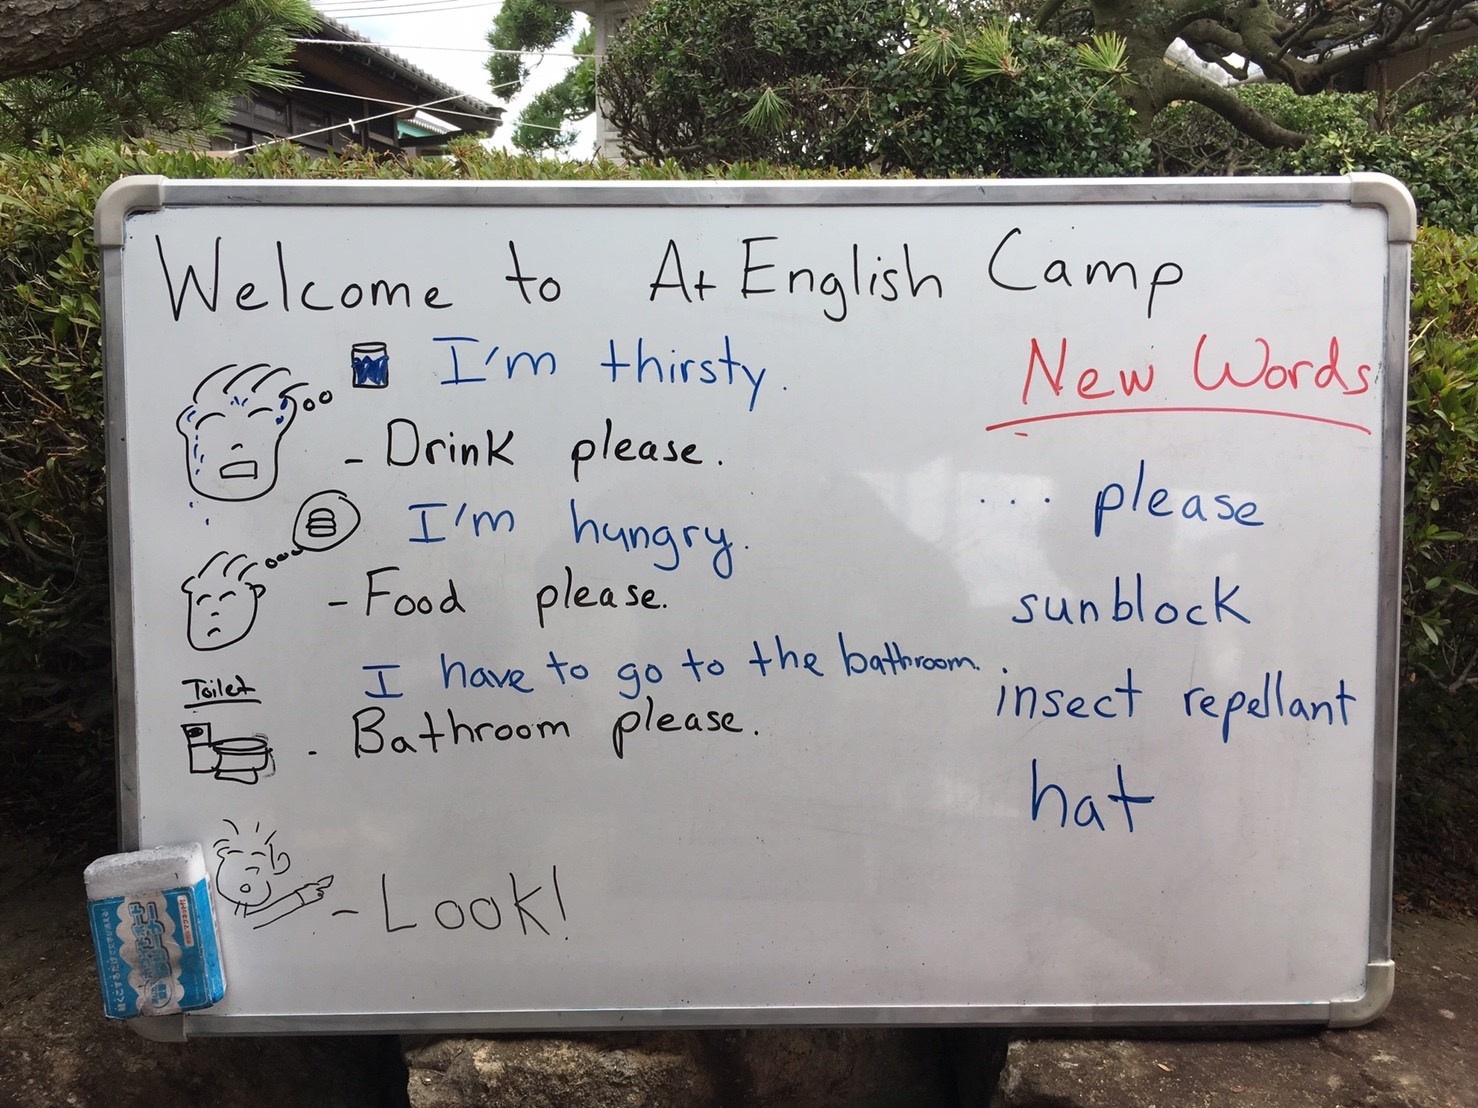 Welcome to A+ English Camp
I'm thirsty.
- Drink please.
I'm hungry.
- Food please.
Toilet
I have to go to the bathroom.
- Bathroom please.
- Look!
New Words
.... please
sunblock
insect repellant
hat